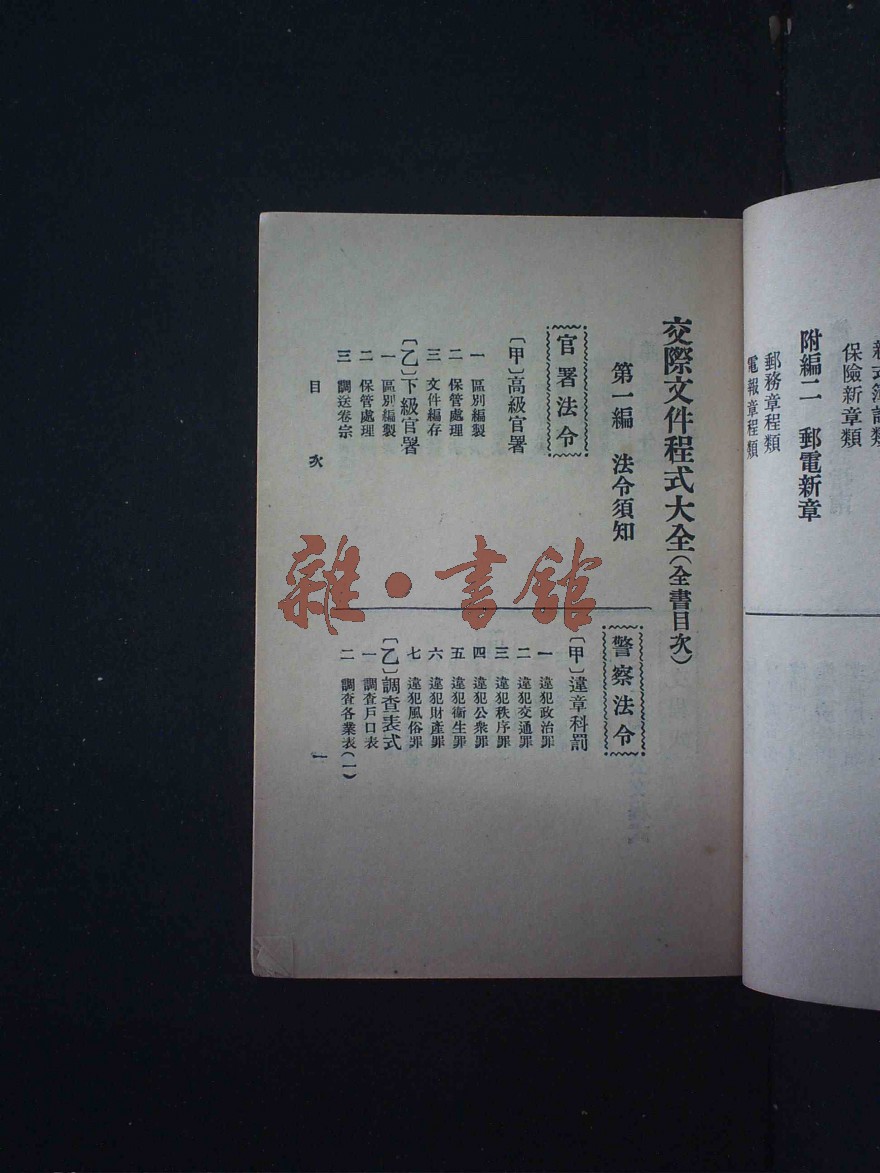 新式簿記類
保險新章類
附編二　郵電新章
郵務章程類
電報章程類
交際文件程式大全(全書目次)
第一編　法令須知
官署法令
〔甲〕高級官署
一　區別編製
二　保管處理
三　文件編存
〔乙〕下級官署
一　區別編製
二　保管處理
三　調送卷宗
警察法令
〔甲〕違章科罰
一　違犯政治罪
二　違犯交通罪
三　違犯秩序罪
四　違犯公衆罪
五　違犯衞生罪
六　違犯財產罪
七　違犯風俗罪
〔乙〕調查表式
一　調查戶口表
二　調查各業表(一)
目次
一
雜·書館